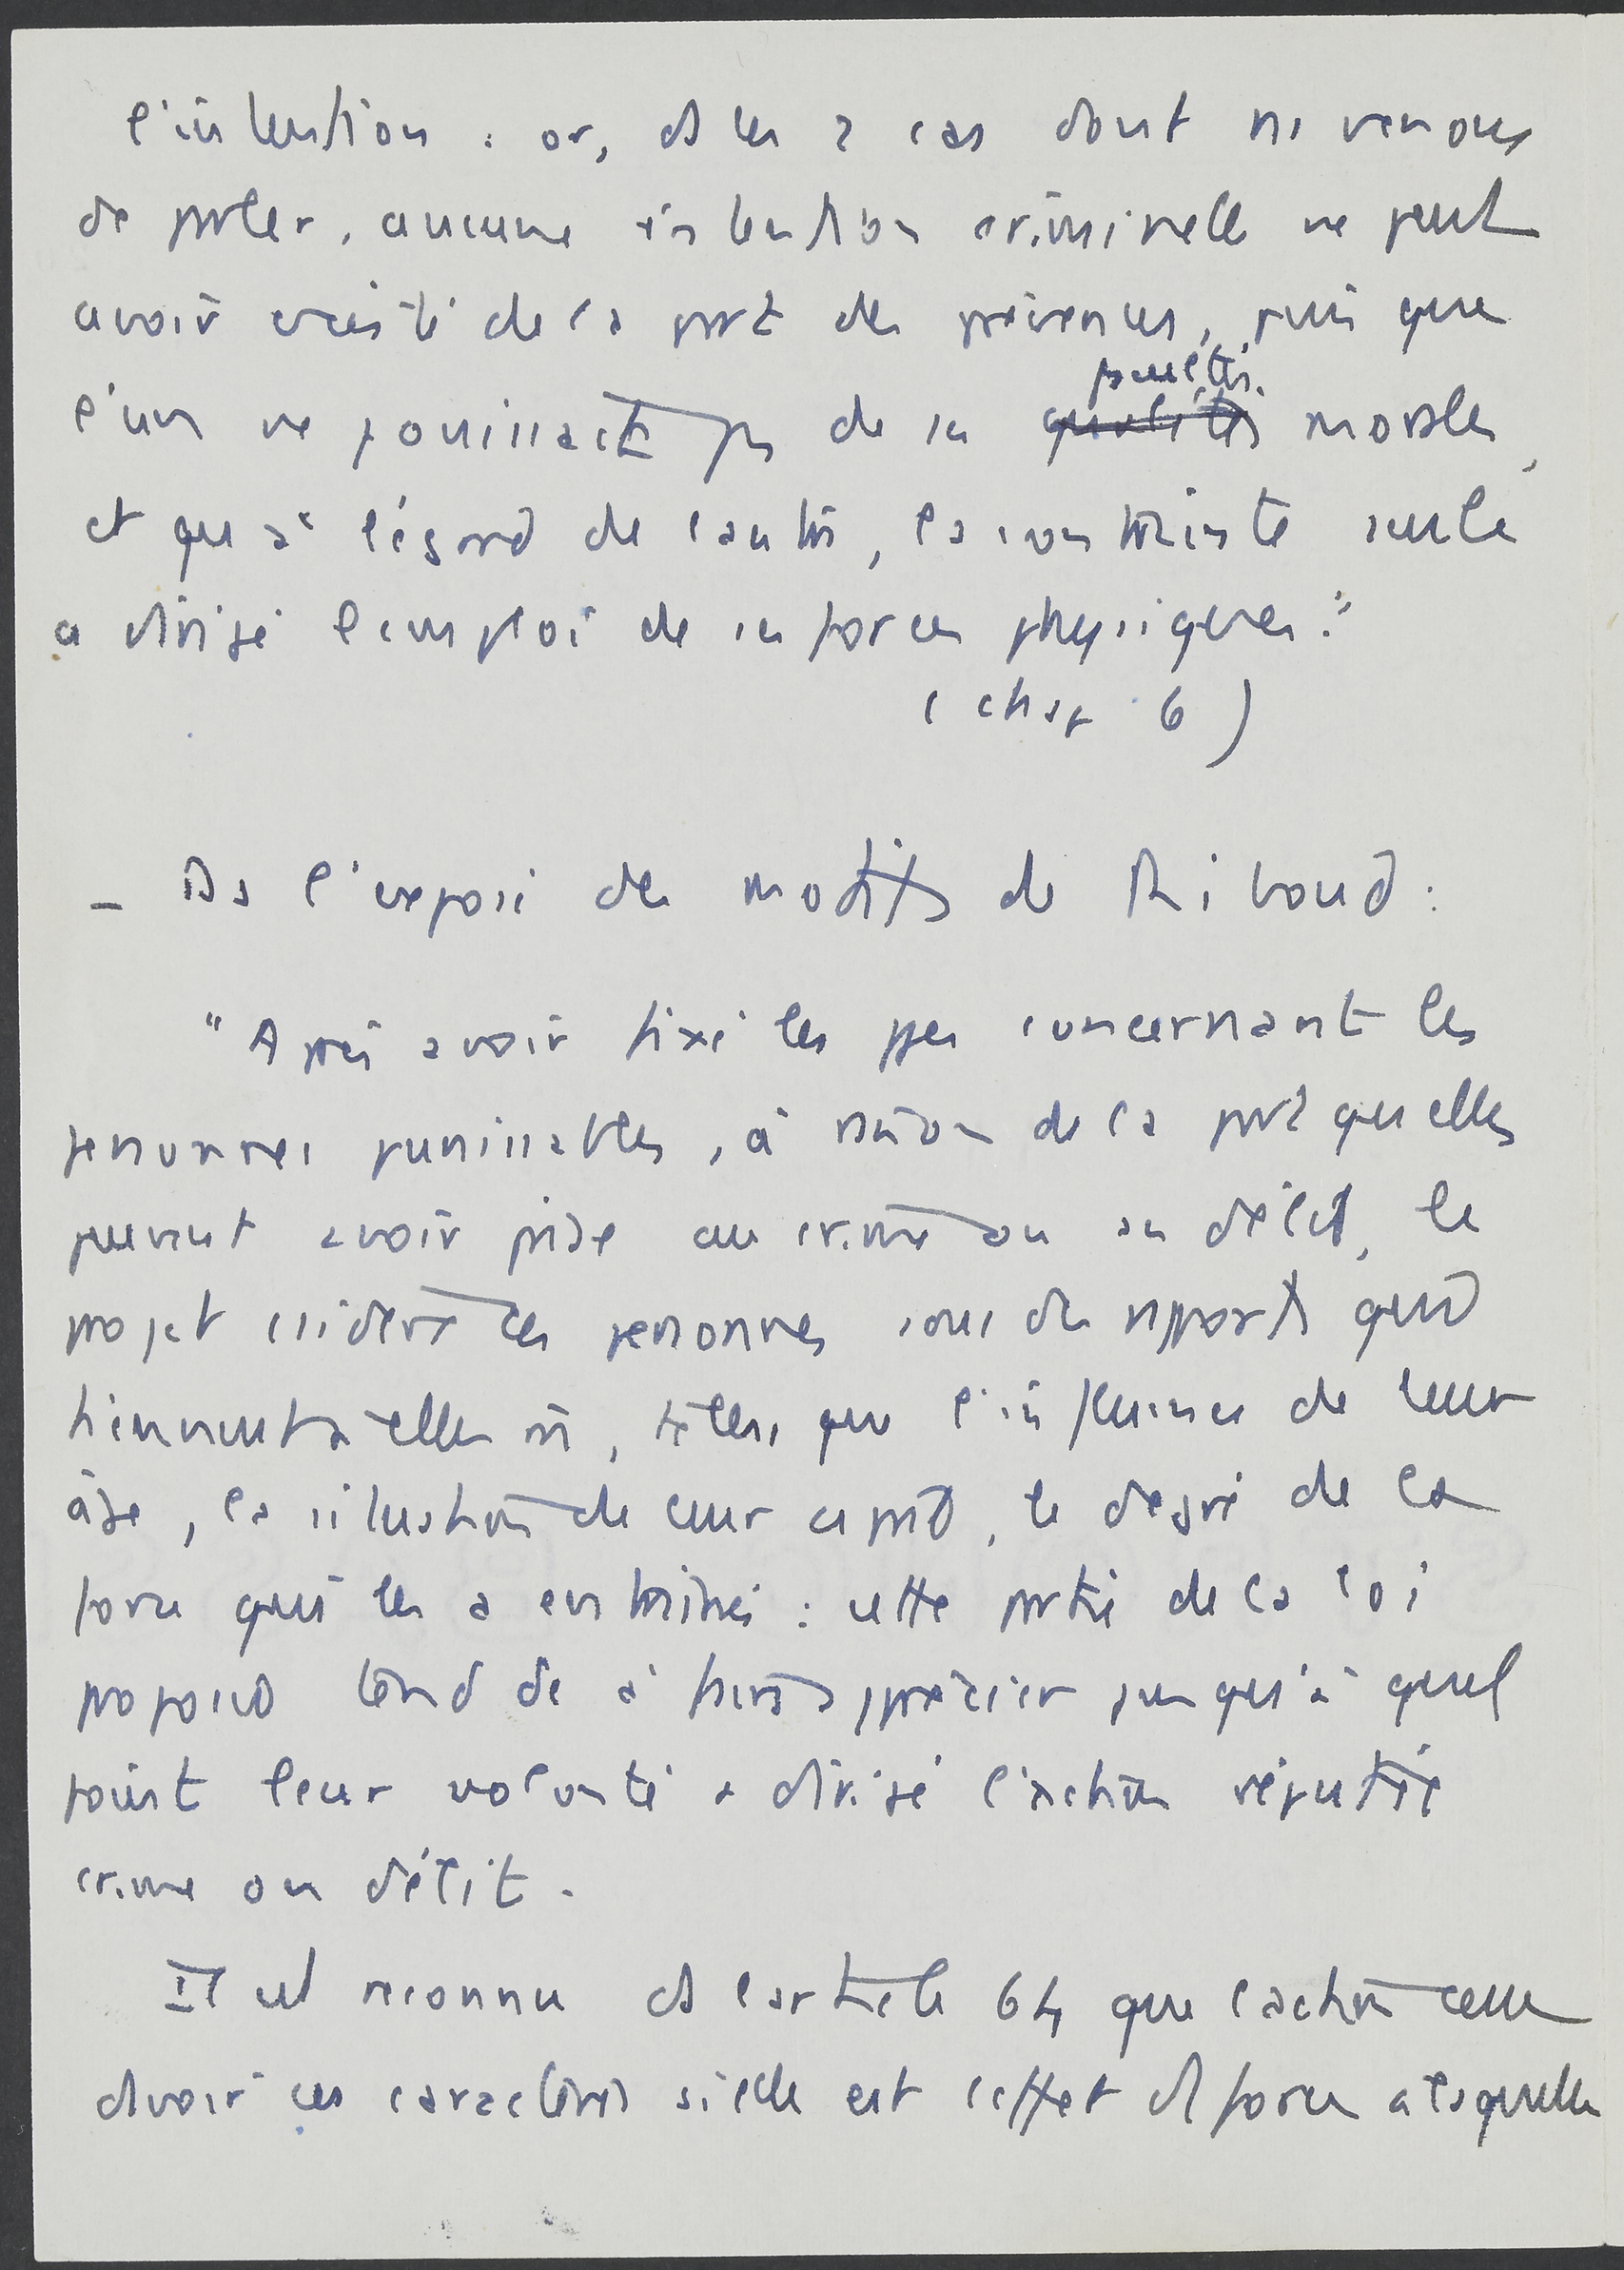 l'intention : or, ds les 2 cas dont ns venons
de parler, aucune intention criminelle ne peut
avoir existé de la part des prévenus, puisque
l'un ne jouissait pas de ses facultés morales,
et qu'à l'égard de l'autre, la contrainte seule
a dirigé l'emploi de ses forces physiques."
(chap 6)
— Ds l'exposé des motifs de Riboud :
"Après avoir fixé les ppes concernant les
personnes punissables, à raison de la part qu'elles
peuvent avoir prise au crime ou au délit, le
projet csidère ces personnes sous des rapports qui
tiennent à elles, telles que l'influence de leur
âge, la situation de leur esprit, le degré de la
force qui les a entraînées : cette partie de la loi
proposée tend dc à faire apprécier jusqu'à quel
point leur volonté a dirigé l'action réputée
crime ou délit.
Il est reconnu ds l'article 64 que l'action cesse
d'avoir ces caractères si elle est l'effet d'1 force à laquelle